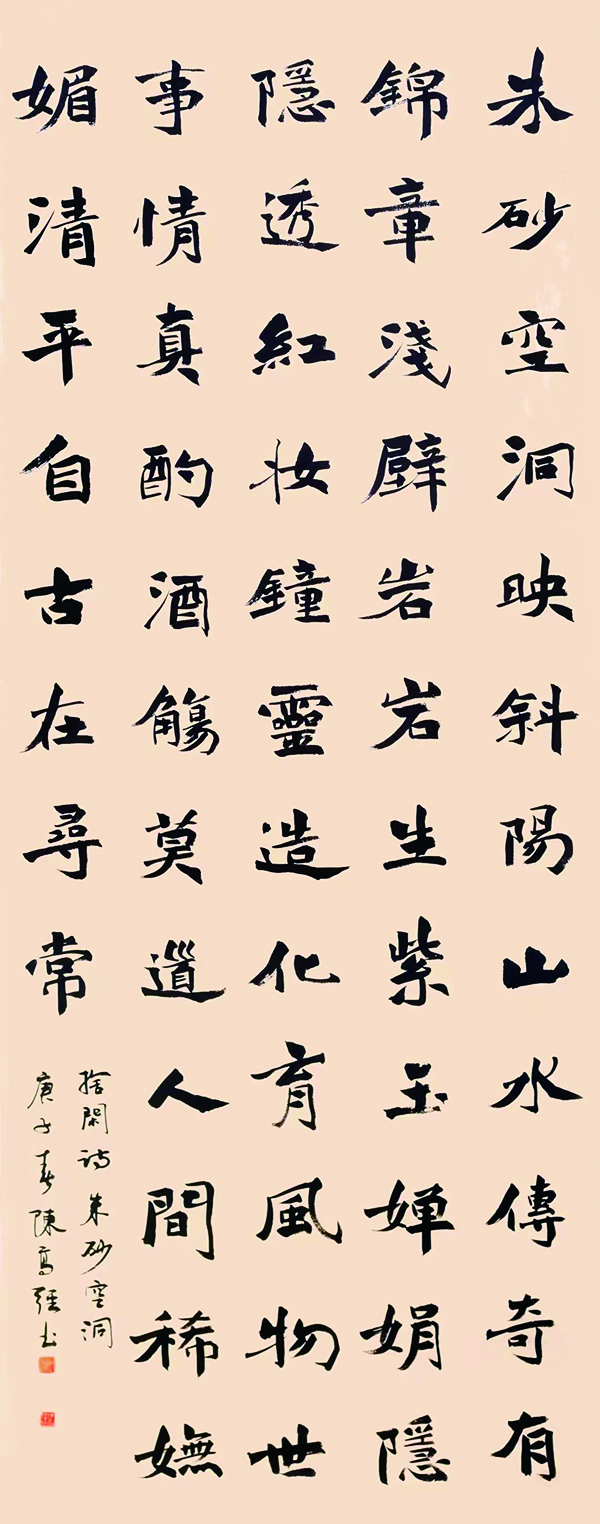 朱砂空洞映斜陽山水傳奇有
錦章淺壁岩岩生紫玉嬋娟隱
隱透紅妝鐘靈造化育風物世
事情真酌酒觴莫道人間稀嫵
媚清平自古在尋常
捨閑詩朱砂空洞
庚子春陳高強書